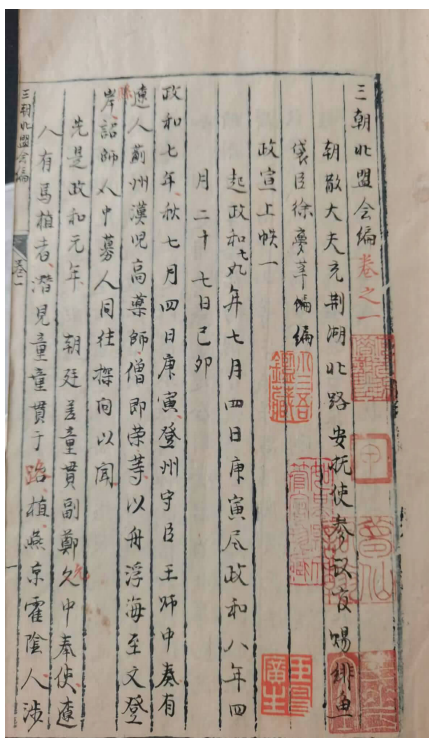 三朝北盟会编卷之一
朝散大夫充荆湖北路安抚使参议官赐绯鱼
袋臣徐夢莘编
政宣上帙一
起政和七年七月四日庚寅尽政和八年四
月二十七日己卯
政和七年秋七月四日庚寅登州守臣王师中奏有
遼人薊州漢児高藥師僧即荣等以舟浮海至文登
岸詔師中募人同往探问以闻
先是政和元年 朝廷差童贯副鄭久中奉使遼
人有馬植者潛見童貫于路植燕京霍陰人涉
三朝北盟会编
卷一
一